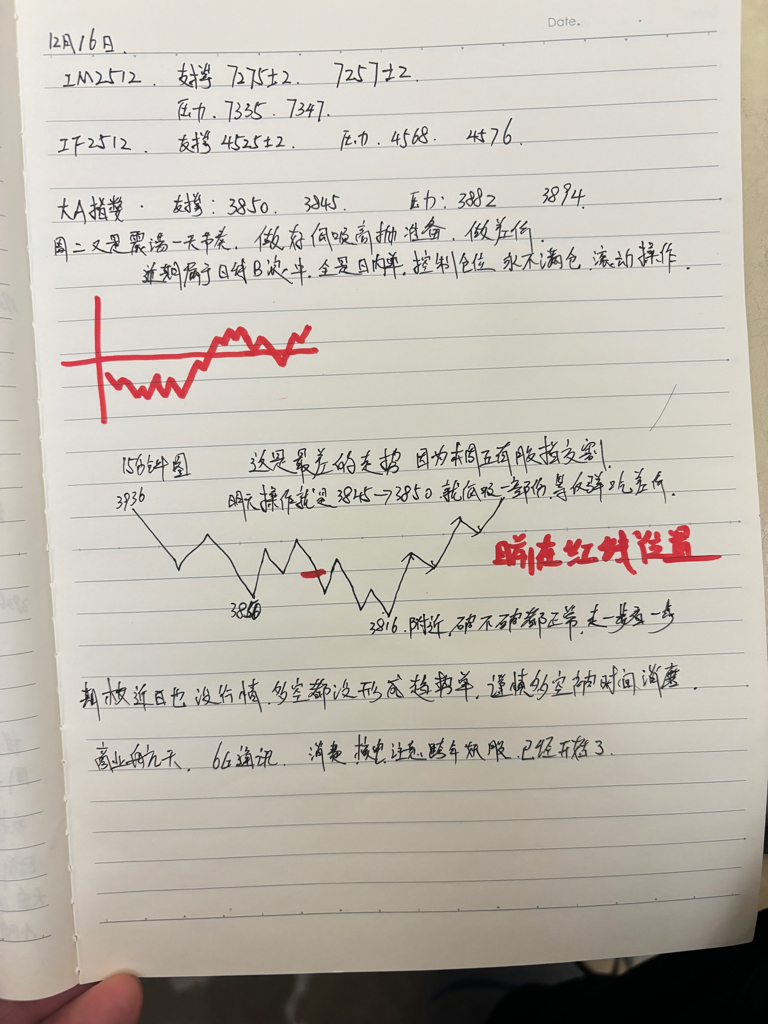 Date.
12月16日.
IM2512. 支撑 7275±2. 7257±2.
压力. 7335. 7347.
IF2512. 支撑 4525±2. 压力. 4568. 4576.
大A指数. 支撑: 3850. 3845. 压力: 3882 3894.
周二又是震荡一天节奏, 做好低吸高抛准备, 做差价.
近期属于日线B浪, 全是日内单, 控制仓位 永不满仓, 滚动操作.
15分钟图 这是最差的走势 因为本周五有股指交割.
3936 明天操作就是 3845→3850 就低吸一部份, 等反弹吃差价.
瞄准红线位置
3850
3816. 附近, 破不破都正常, 走一步看一步
期权近日也没行情, 多空都没形成趋势单, 谨慎多空 时间消磨.
商业航天, 6G通讯, 消费 核电 注意跨年妖股, 已经开搞了.